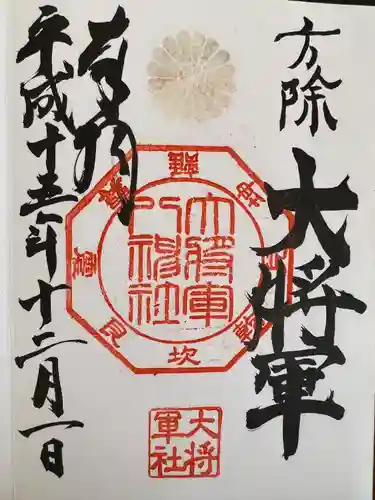 方除
大将軍
奉拝
平成十五年十二月一日
大将軍
八神社
坎
艮
大将
軍社